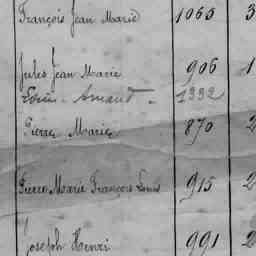 François Jean Marie 1065 3
Jules Jean Marie 906 1
Louis - Armand - 1332
Pierre Marie 870 2
Pierre Marie François Louis 915 2
Joseph Henri 991 2